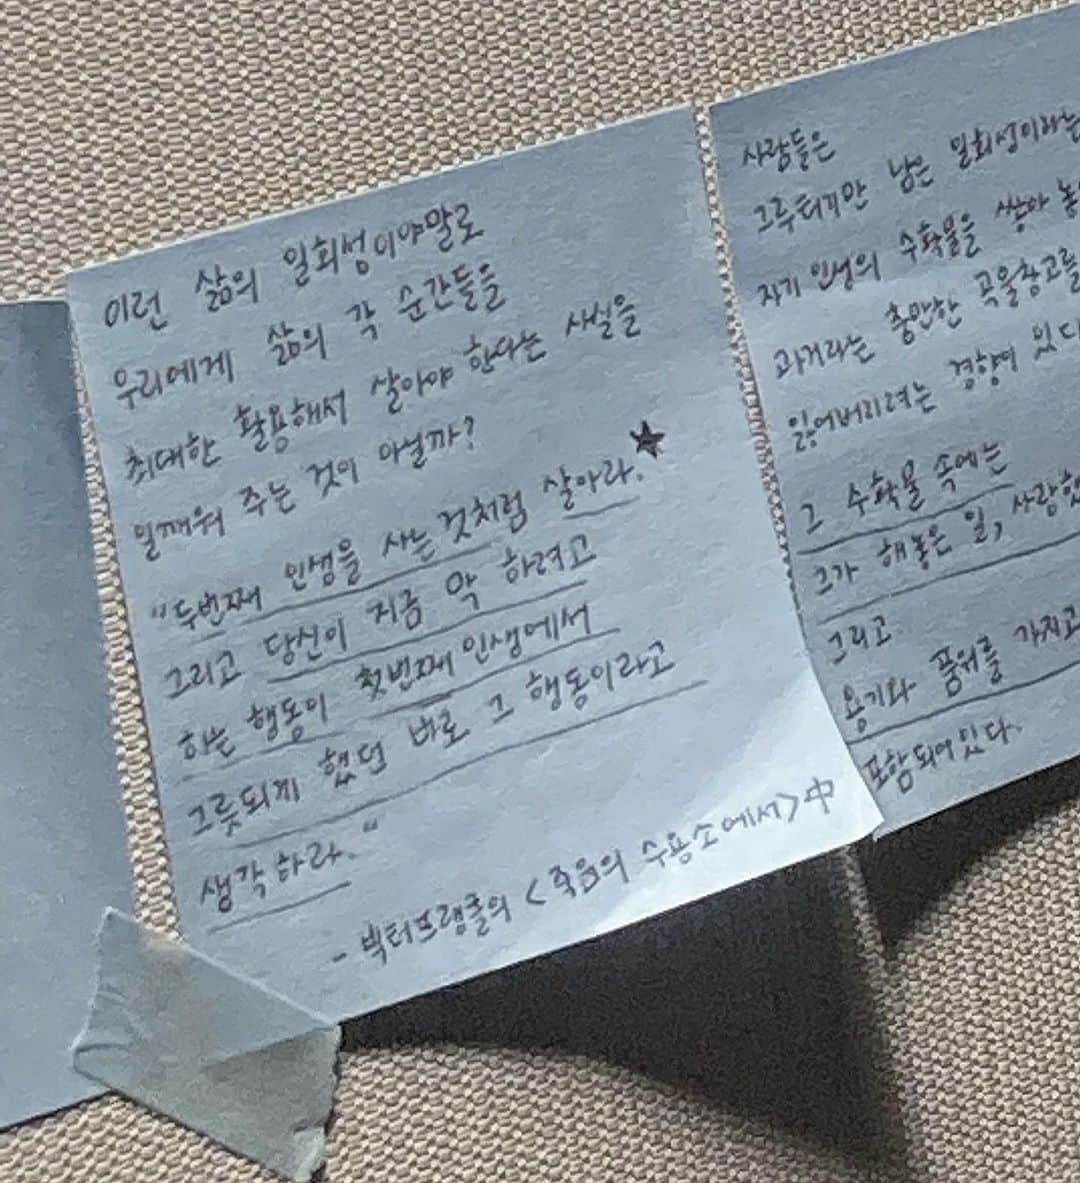 이런 삶의 일회성이야말로
우리에게 삶의 각 순간들을
최대한 활용해서 살아야 한다는 사실을
일깨워 주는 것이 아닐까?
"두번째 인생을 사는 것처럼 살아라.★
그리고 당신이 지금 막 하려고
하는 행동이 첫번째 인생에서
그릇되게 했던 바로 그 행동이라고
생각하라."
- 빅터프랭클의 <죽음의 수용소에서> 中
사람들은
그루터기만 남은 일회성이라는
자기 인생의 수확물을 쌓아 놓
과거라는 충만한 곡물창고를
잃어버리려는 경향이 있다
그 수확물 속에는
그가 해놓은 일, 사랑했
그리고
용기와 품위를 가지고
포함되어있다.